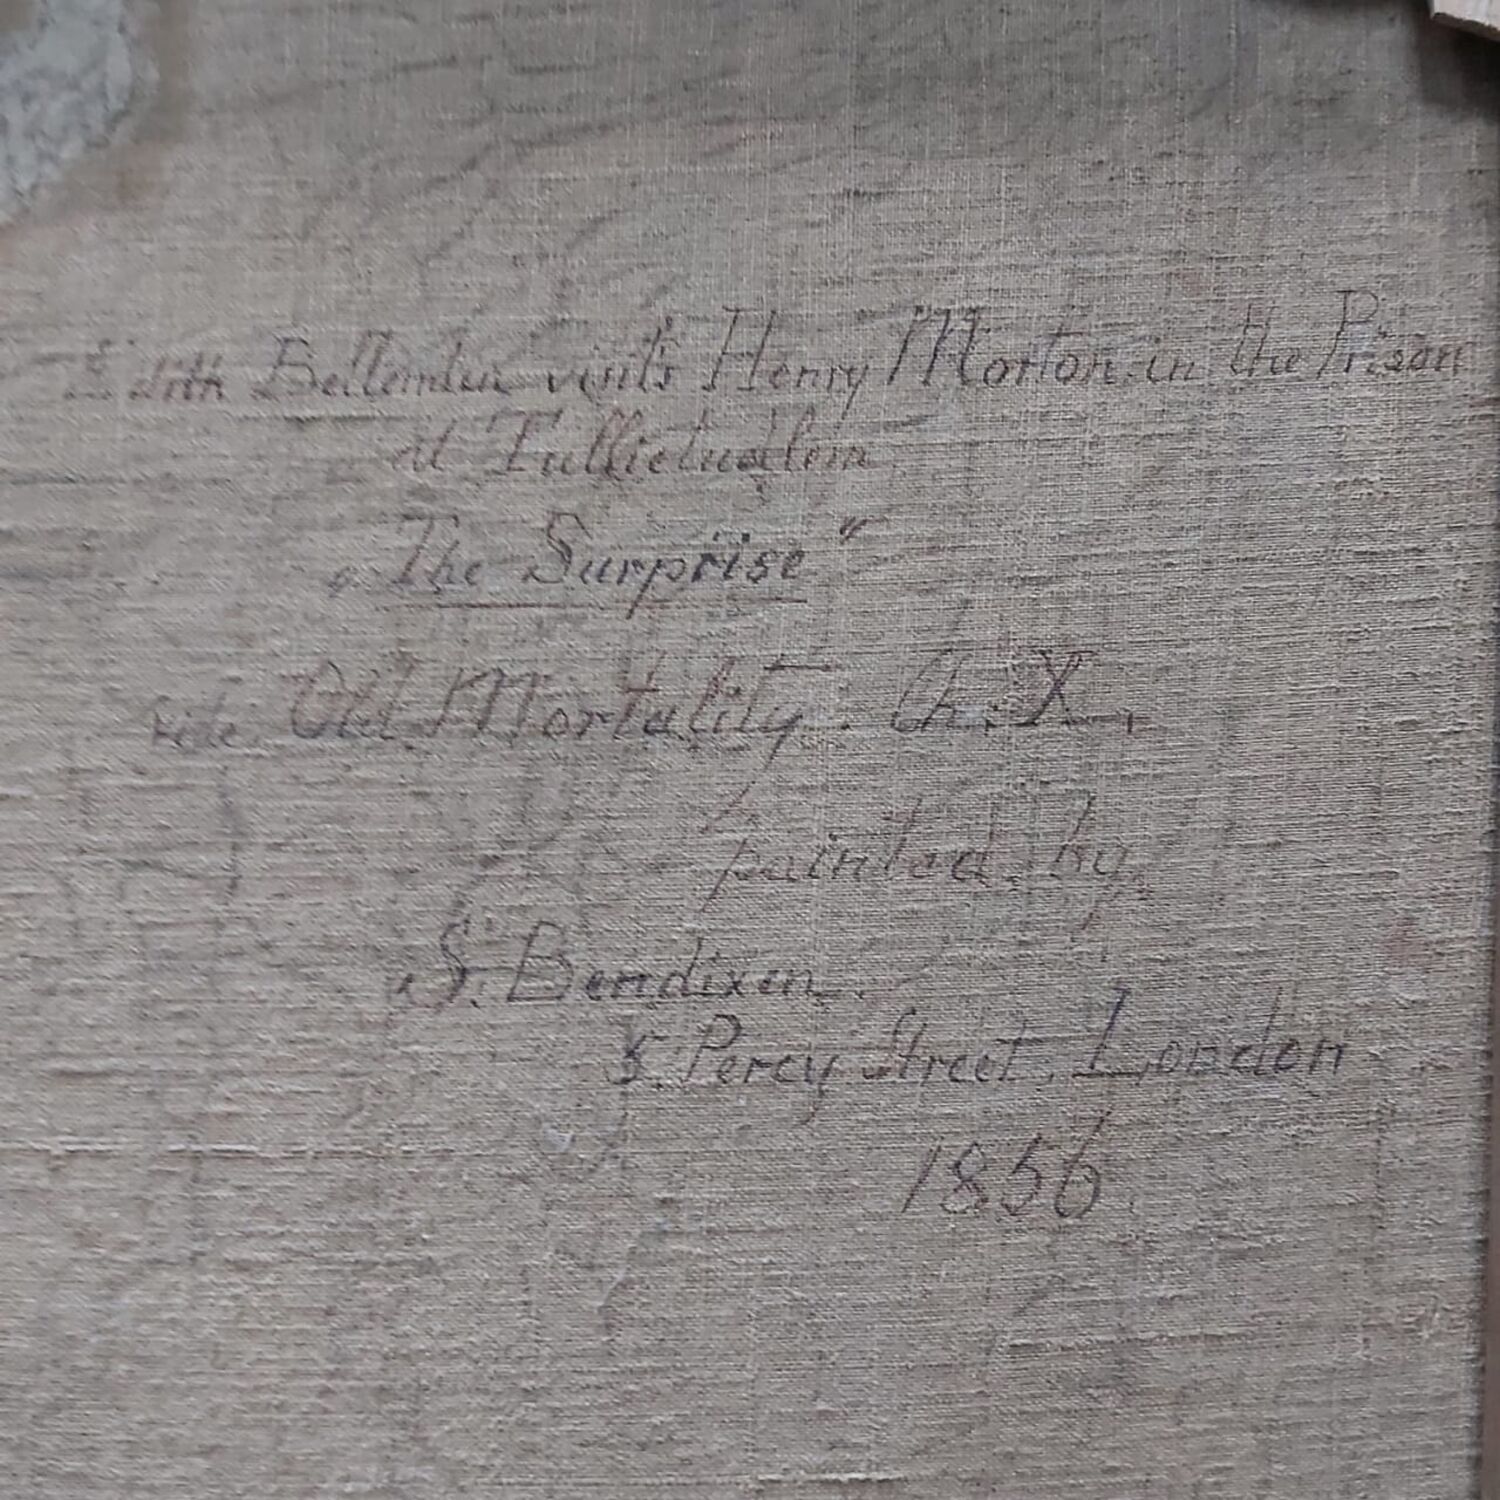 Edith Bellenden visits Henry Morton in the Prison
at Tullietudlem
„The Surprise"
vide. Old Mortality. Ch. X.
painted by
S. Bendixen.
5. Percy Street, London
1856.